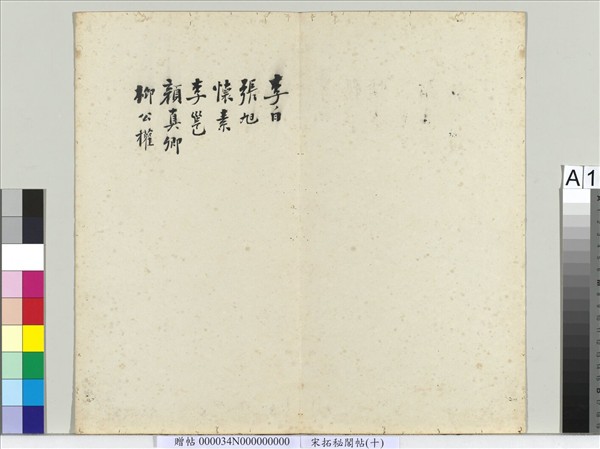 李白
張旭
懷素
李邕
顏真卿
柳公權
A 1
贈帖 000034N000000000 宋拓秘閣帖(十)